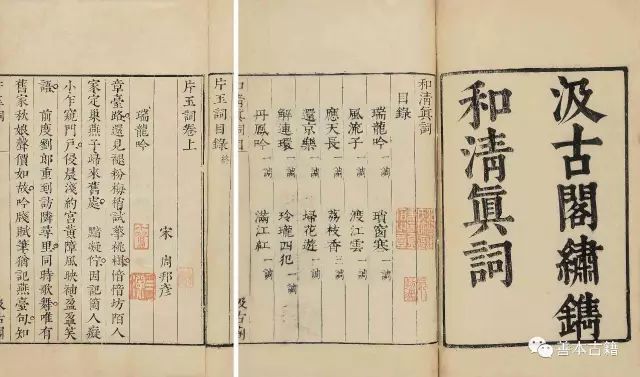 汲古閣繡鐫
和清眞詞
和清眞詞
目錄
瑞龍吟一調 瑣窗寒一調
風流子一調 渡江雲一調
應天長一調 荔枝香三調
還京樂一調 掃花遊一調
解連環一調 玲瓏四犯一調
丹鳳吟一調 滿江紅一調
和清眞詞目
汲古閣
片玉詞目錄終
片玉詞卷上
宋 周邦彥
瑞龍吟
章臺路還見褪粉梅梢試華桃樹愔愔坊陌人
家定巢燕子歸來舊處 黯凝佇因記箇人癡
小乍窺門戶侵晨淺約宮黃障風映袖盈盈笑
語 前度劉郎重到訪隣尋里同時歌舞唯有
舊家秋娘聲價如故吟牋賦筆猶記燕臺句知
片玉詞
汲古閣
善本古籍